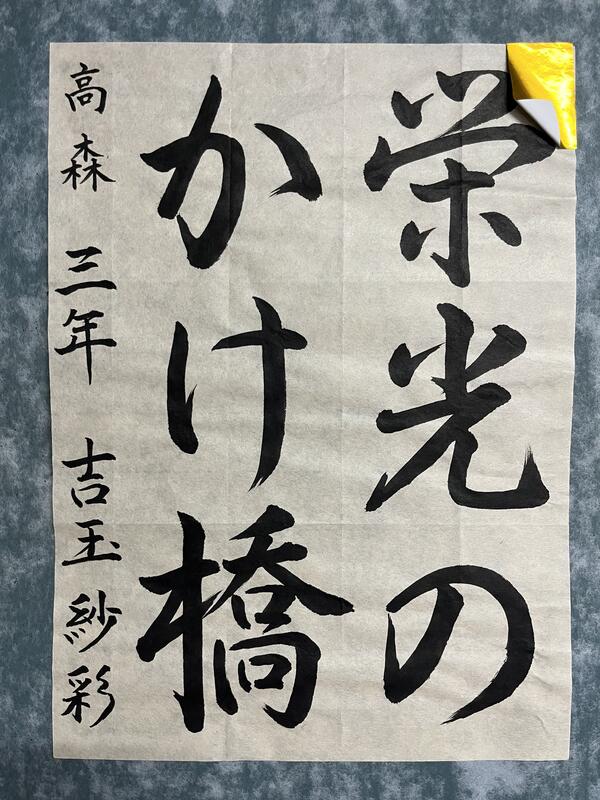 栄光の
かけ橋
高森 三年 吉玉紗彩